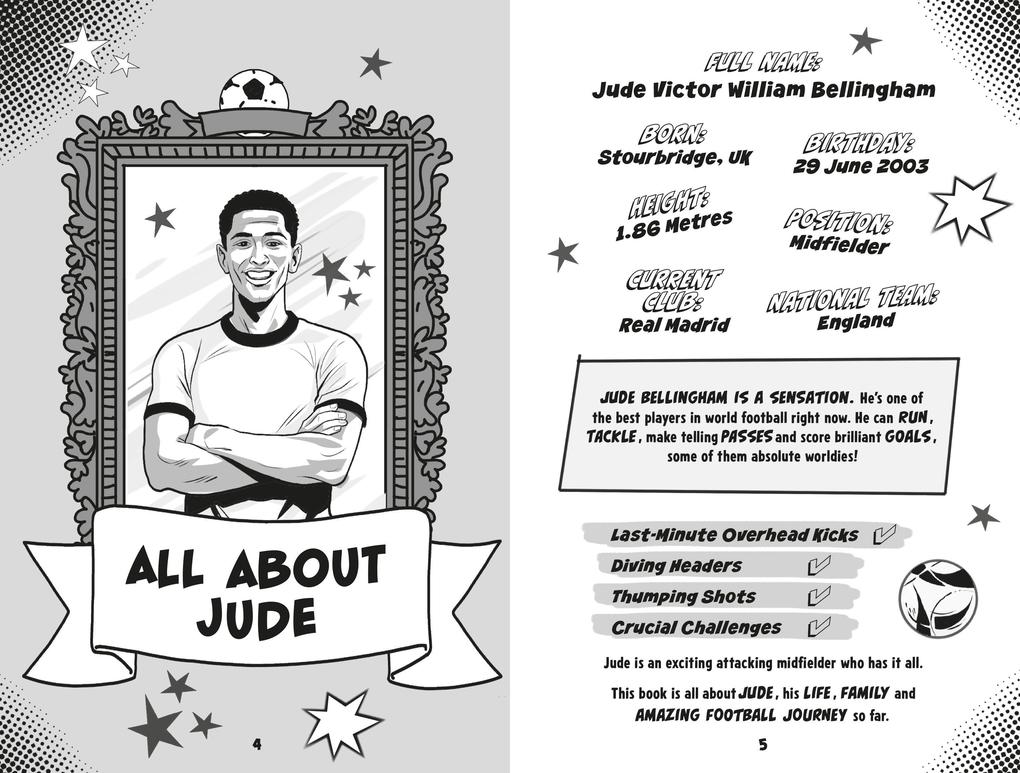 ALL ABOUT
JUDE
4
FULL NAME:
Jude Victor William Bellingham
BORN:
Stourbridge, UK
BIRTHDAY:
29 June 2003
HEIGHT:
1.86 Metres
POSITION:
Midfielder
CURRENT
CLUB:
Real Madrid
NATIONAL TEAM:
England
JUDE BELLINGHAM IS A SENSATION. He's one of
the best players in world football right now. He can RUN,
TACKLE, make telling PASSES and score brilliant GOALS,
some of them absolute worldies!
Last-Minute Overhead Kicks
Diving Headers
Thumping Shots
Crucial Challenges
Jude is an exciting attacking midfielder who has it all.
This book is all about JUDE, his LIFE, FAMILY and
AMAZING FOOTBALL JOURNEY so far.
5